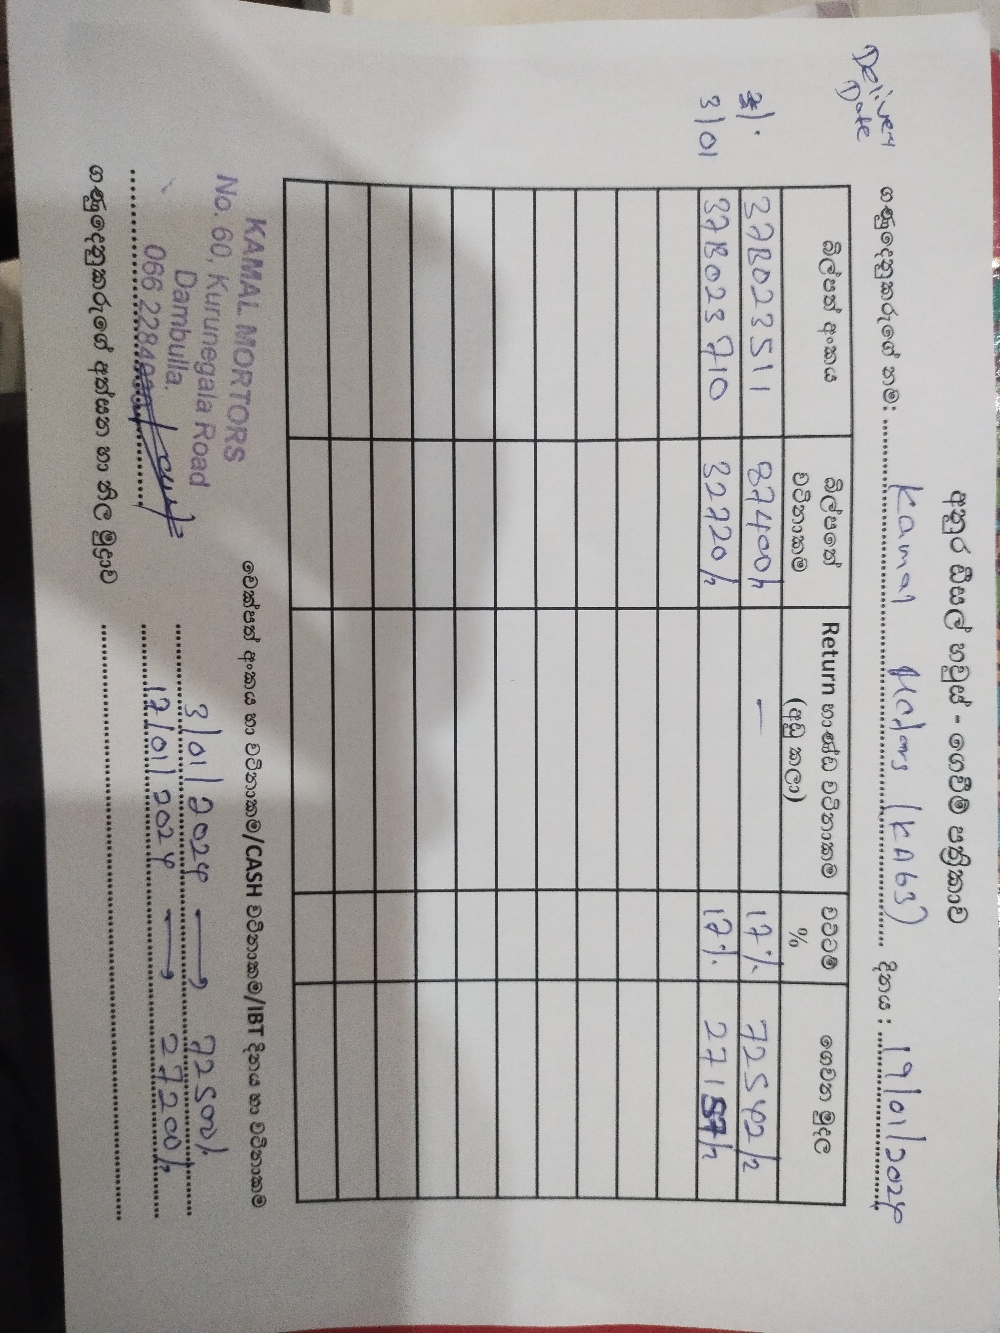 අනුර ඩීසල් හවුස් - ගෙවීම් පත්‍රිකාව
Delivery Date
ගණුදෙනුකරුගේ නම: Kamal Motors (KA63) දිනය : 19/01/2024
බිල්පත් අංකය බිල්පතේ වටිනාකම Return භාණ්ඩ වටිනාකම (අඩු කලා) වට්ටම් % ගෙවන මුදල
37B023511 87400/= — 17% 72542/=
3/01 37B023710 32720/= 17% 27157/=
චෙක්පත් අංකය හා වටිනාකම/CASH වටිනාකම/IBT දිනය හා වටිනාකම
3/01/2024 → 72500/=
17/01/2024 → 27200/=
KAMAL MORTORS
No. 60, Kurunegala Road
Dambulla.
066 2284
ගණුදෙනුකරුගේ අත්සන හා නිල මුද්‍රාව